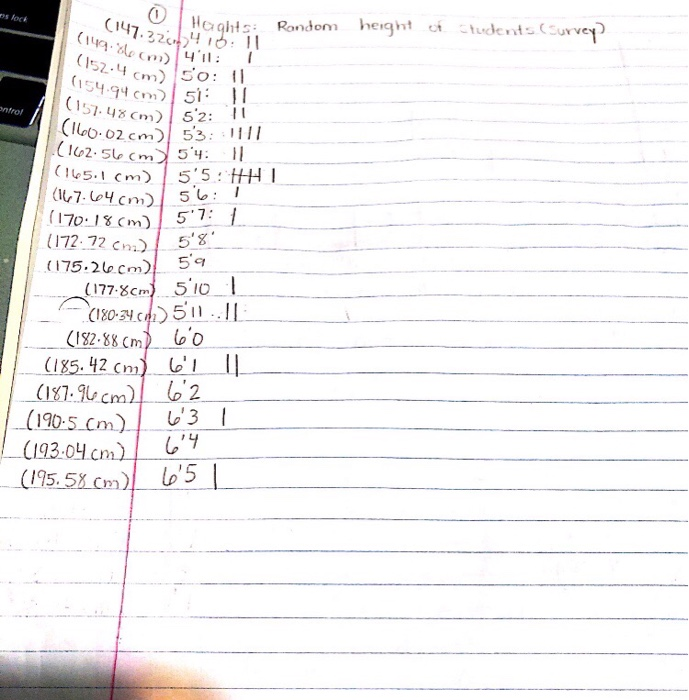 ps lock
ontrol
① Heights: Random height of students (survey)
(147.32cm) 4'10: ||
(149.86cm) 4'11: |
(152.4 cm) 5'0: ||
(154.94cm) 5'1: ||
(157.48cm) 5'2: ||
(160.02cm) 5'3: ||||
(162.56cm) 5'4: ||
(165.1 cm) 5'5: 卌 |
(167.64cm) 5'6: |
(170.18cm) 5'7: |
(172.72 cm) 5'8'
(175.26cm) 5'9
(177.8cm) 5'10 |
(180.34cm) 5'11..||
(182.88cm) 6'0
(185.42 cm) 6'1 ||
(187.96cm) 6'2
(190.5 cm) 6'3 |
(193.04cm) 6'4
(195.58cm) 6'5 |